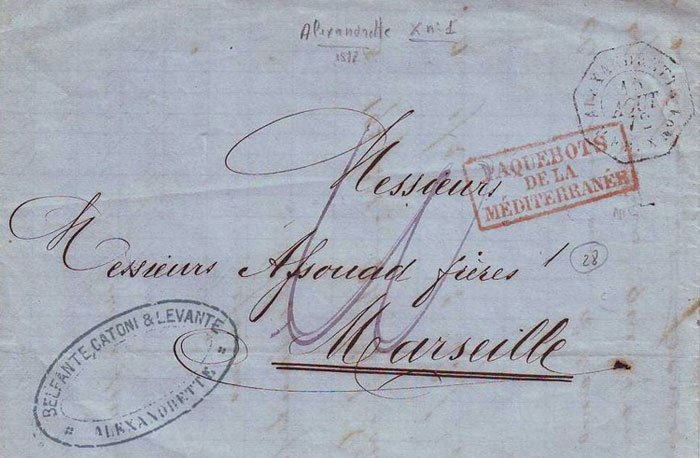 Alexandrette X n° 1
1872
15
AOUT
72
PAQUEBOTS
DE LA
MÉDITERRANÉE
Messieurs
Messieurs Assouad frères
28
Marseille
BELFANTE, CATONI & LEVANTE
ALEXANDRETTE